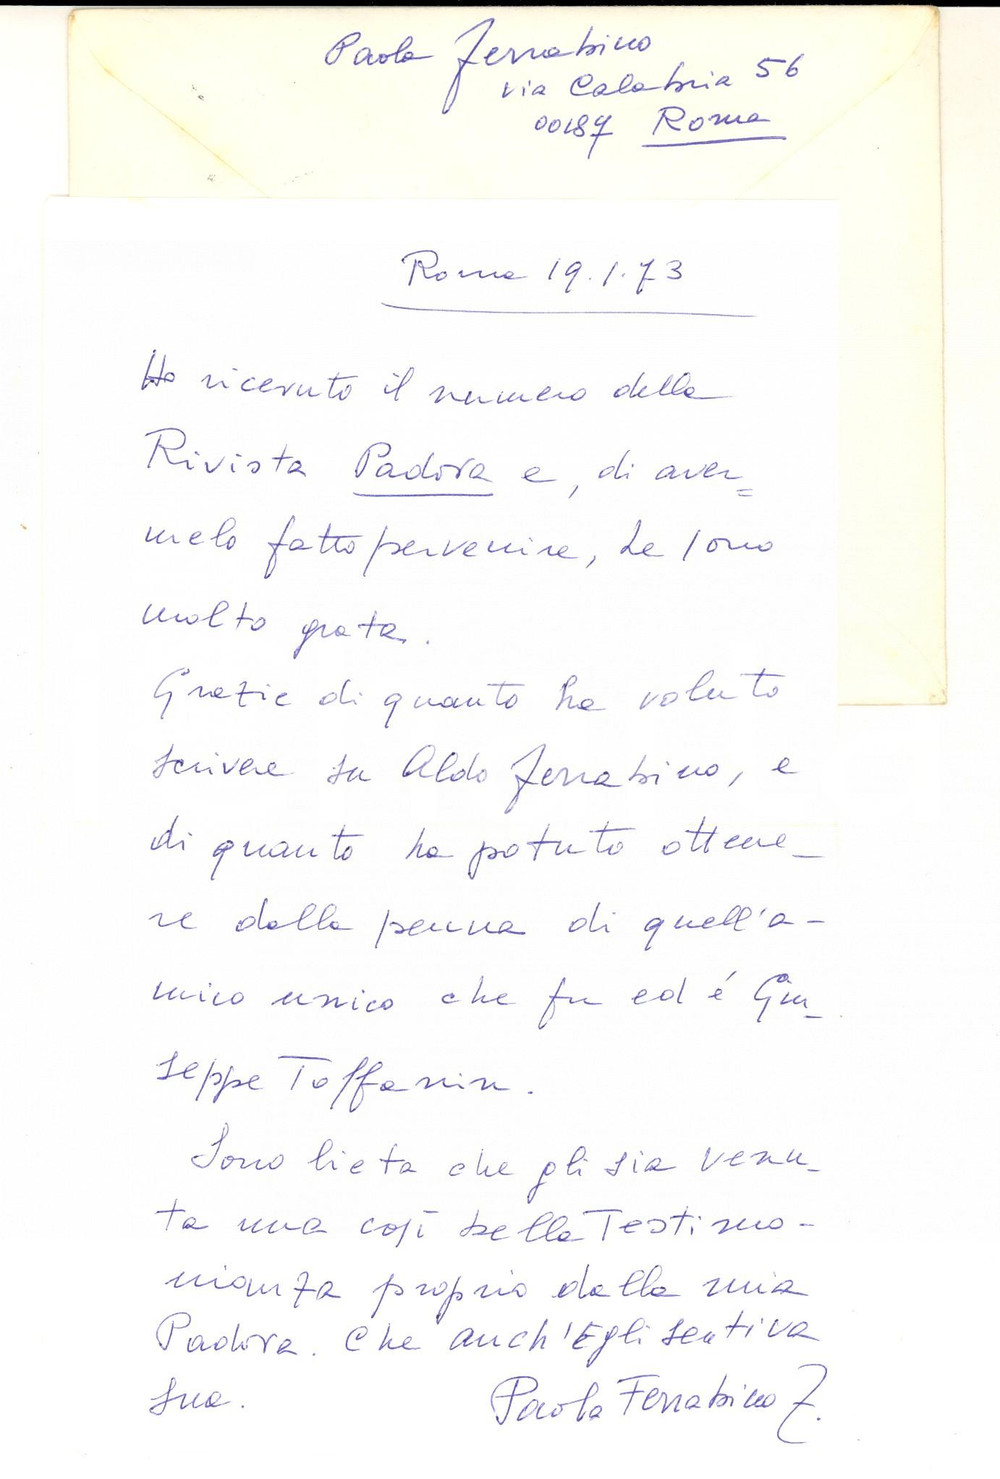 Paola Ferrabino
via Calabria 56
00187 Roma
Roma 19.1.73
Ho ricevuto il numero della
Rivista Padova e, di aver=
melo fatto pervenire, Le sono
molto grata.
Grazie di quanto ha voluto
scrivere su Aldo Ferrabino, e
di quanto ha potuto ottene-
re dalla penna di quell'a-
mico unico che fu ed é Giu-
seppe Toffanin.
Sono lieta che gli sia venu-
ta una così bella Testimo-
nianza proprio dalla mia
Padova. Che anch'Egli sentiva
sua.
Paola Ferrabino Z.